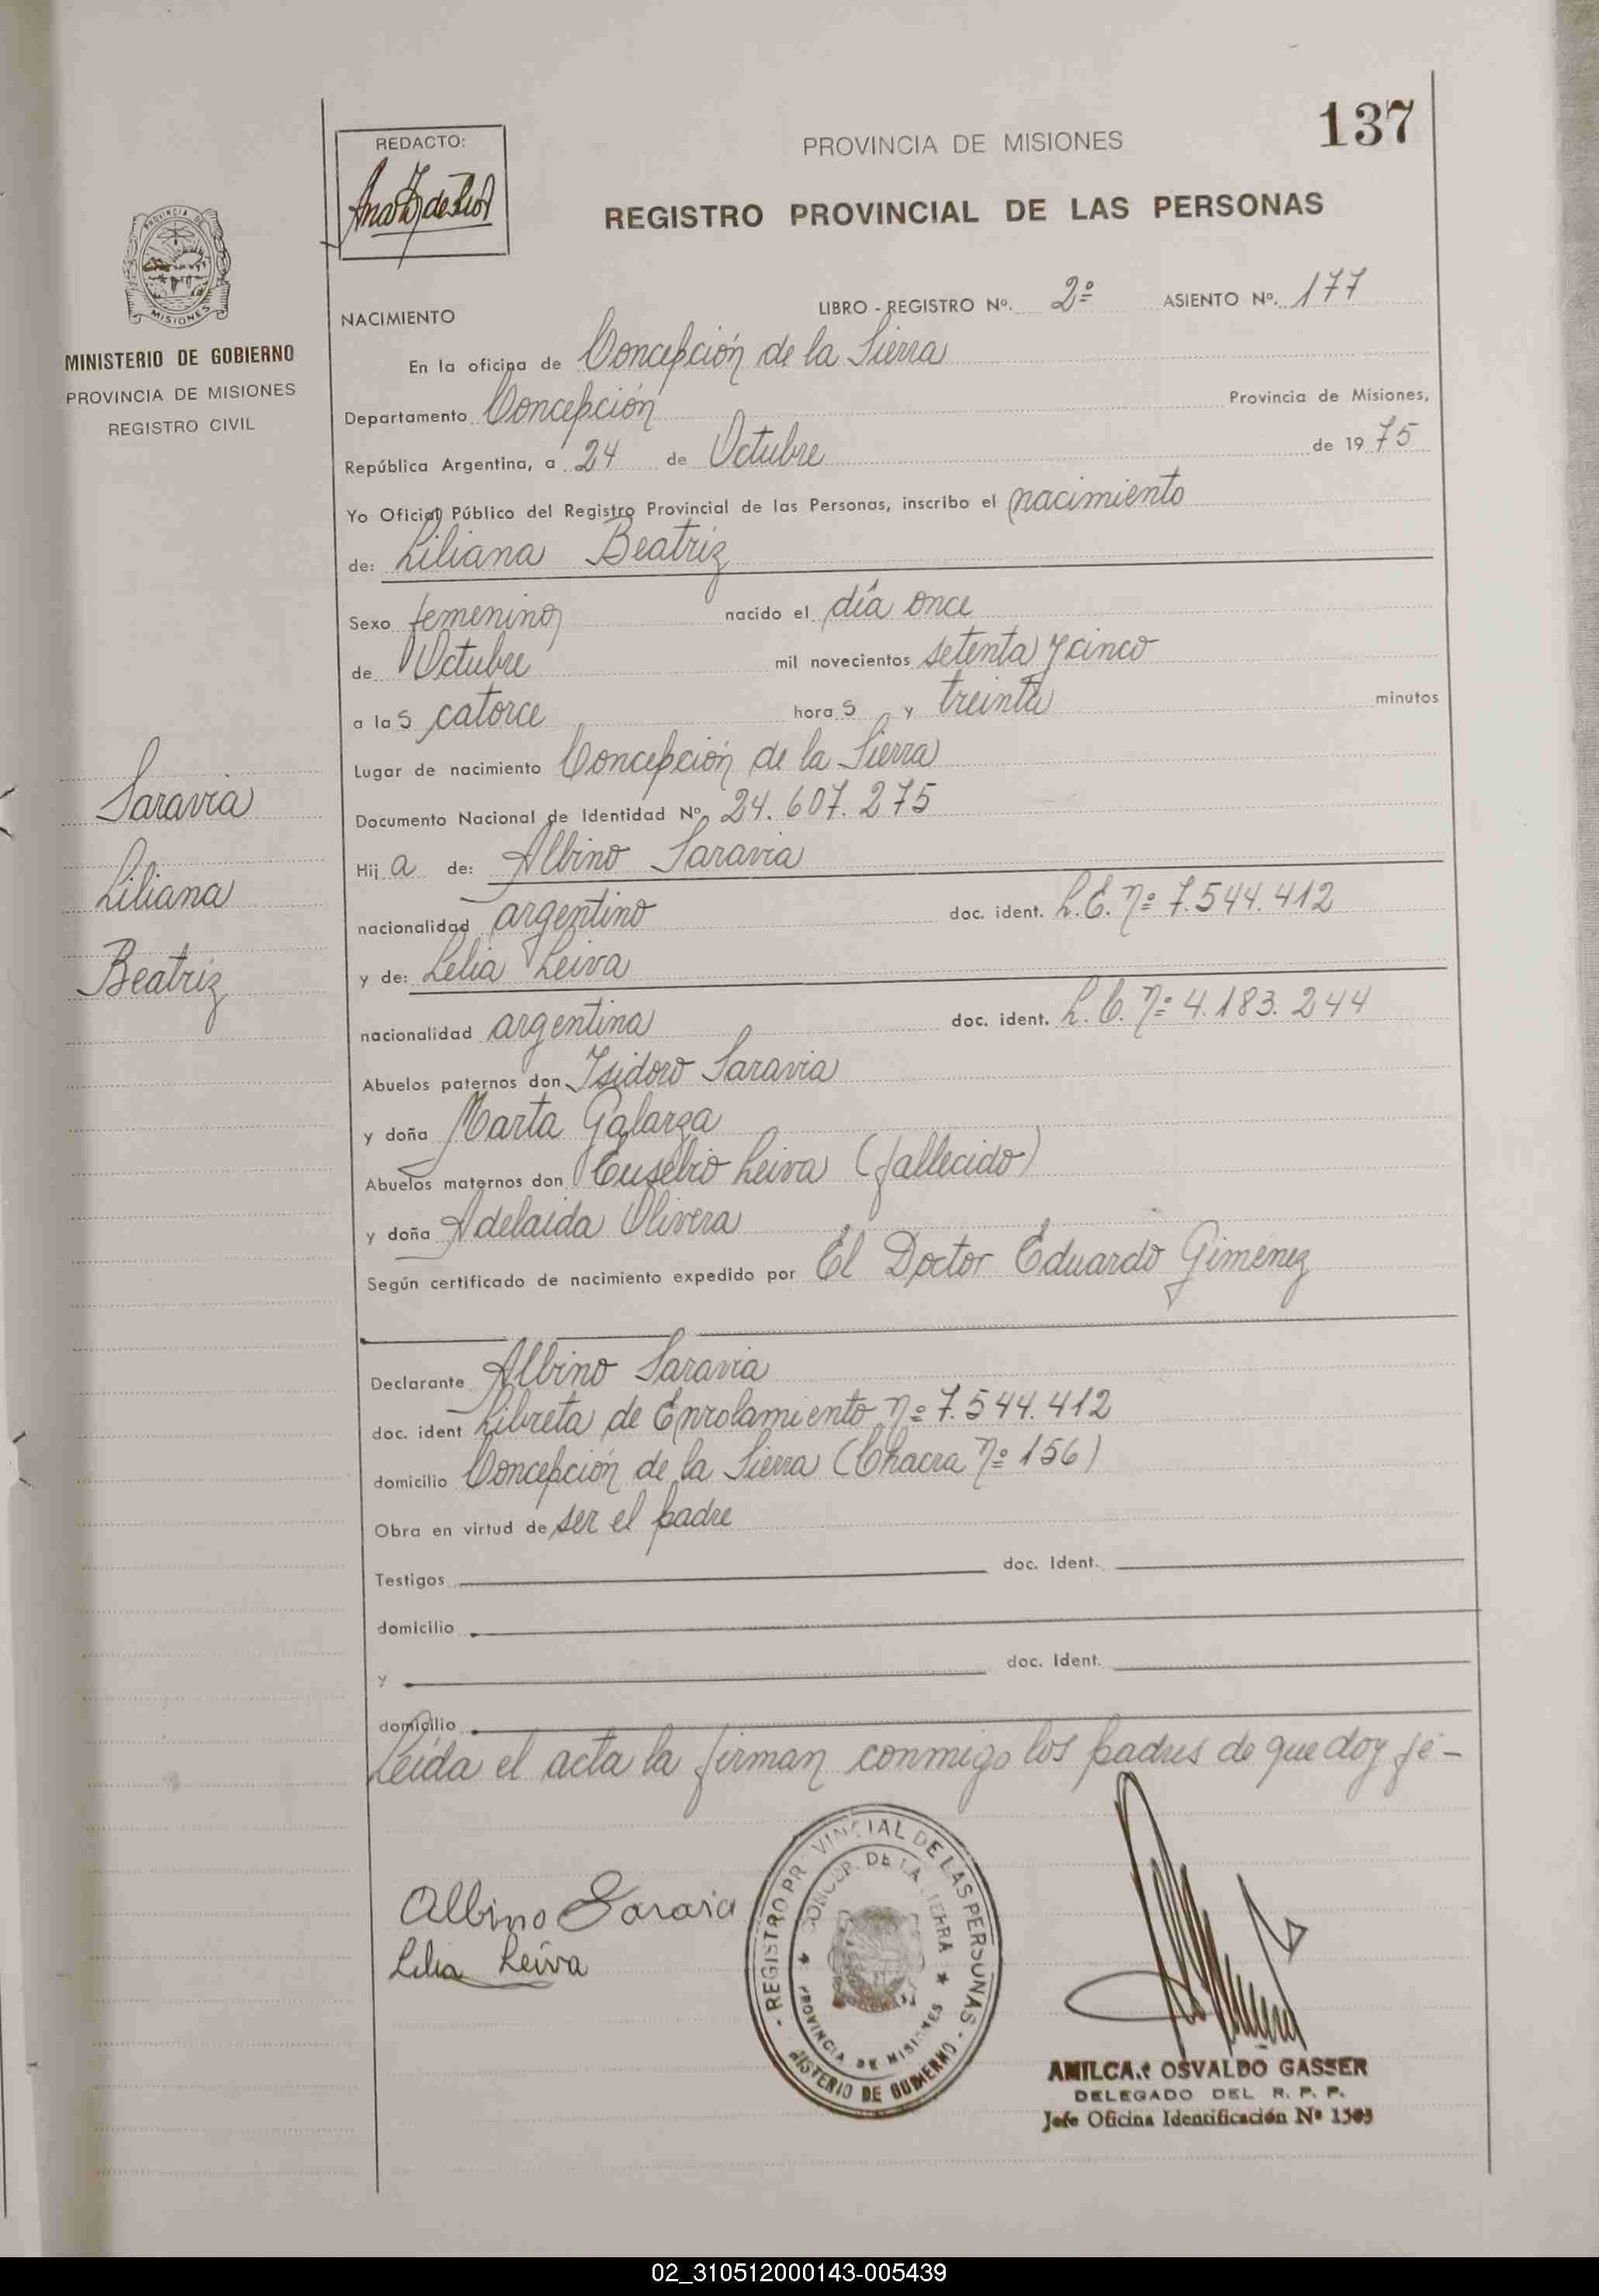 137
REDACTO:
PROVINCIA DE MISIONES
REGISTRO PROVINCIAL DE LAS PERSONAS
MISIONES
MINISTERIO DE GOBIERNO
PROVINCIA DE MISIONES
REGISTRO CIVIL
Saravia
Liliana
Beatriz
NACIMIENTO LIBRO - REGISTRO Nº. 2º ASIENTO Nº. 177
En la oficina de Concepción de la Sierra
Departamento Concepción Provincia de Misiones,
República Argentina, a 24 de Octubre de 1975
Yo Oficial Público del Registro Provincial de las Personas, inscribo el nacimiento
de: Liliana Beatriz
Sexo femenino nacido el día once
de Octubre mil novecientos setenta y cinco
a las catorce horas y treinta minutos
Lugar de nacimiento Concepción de la Sierra
Documento Nacional de Identidad Nº 24.607.275
Hija de: Albino Saravia
nacionalidad argentino doc. ident. L.E. nº 7.544.412
y de: Lelia Leiva
nacionalidad argentina doc. ident. L.C. nº 4.183.244
Abuelos paternos don Isidoro Saravia
y doña Marta Galarza
Abuelos maternos don Eusebio Leiva (fallecido)
y doña Adelaida Olivera
Según certificado de nacimiento expedido por El Doctor Eduardo Giménez
Declarante Albino Saravia
doc. ident Libreta de Enrolamiento nº 7.544.412
domicilio Concepción de la Sierra (Chacra nº 156)
Obra en virtud de ser el padre
Testigos doc. Ident.
domicilio
y doc. Ident.
domicilio
Leída el acta la firman conmigo los padres de que doy fé-
Albino Saravia
Lelia Leiva
- REGISTRO PROVINCIAL DE LAS PERSONAS -
MINISTERIO DE GOBIERNO
CONCEP. DE LA SIERRA
PROVINCIA DE MISIONES
AMILCAR OSVALDO GASSER
DELEGADO DEL R. P. P.
Jefe Oficina Identificación Nº 1505
02_310512000143-005439